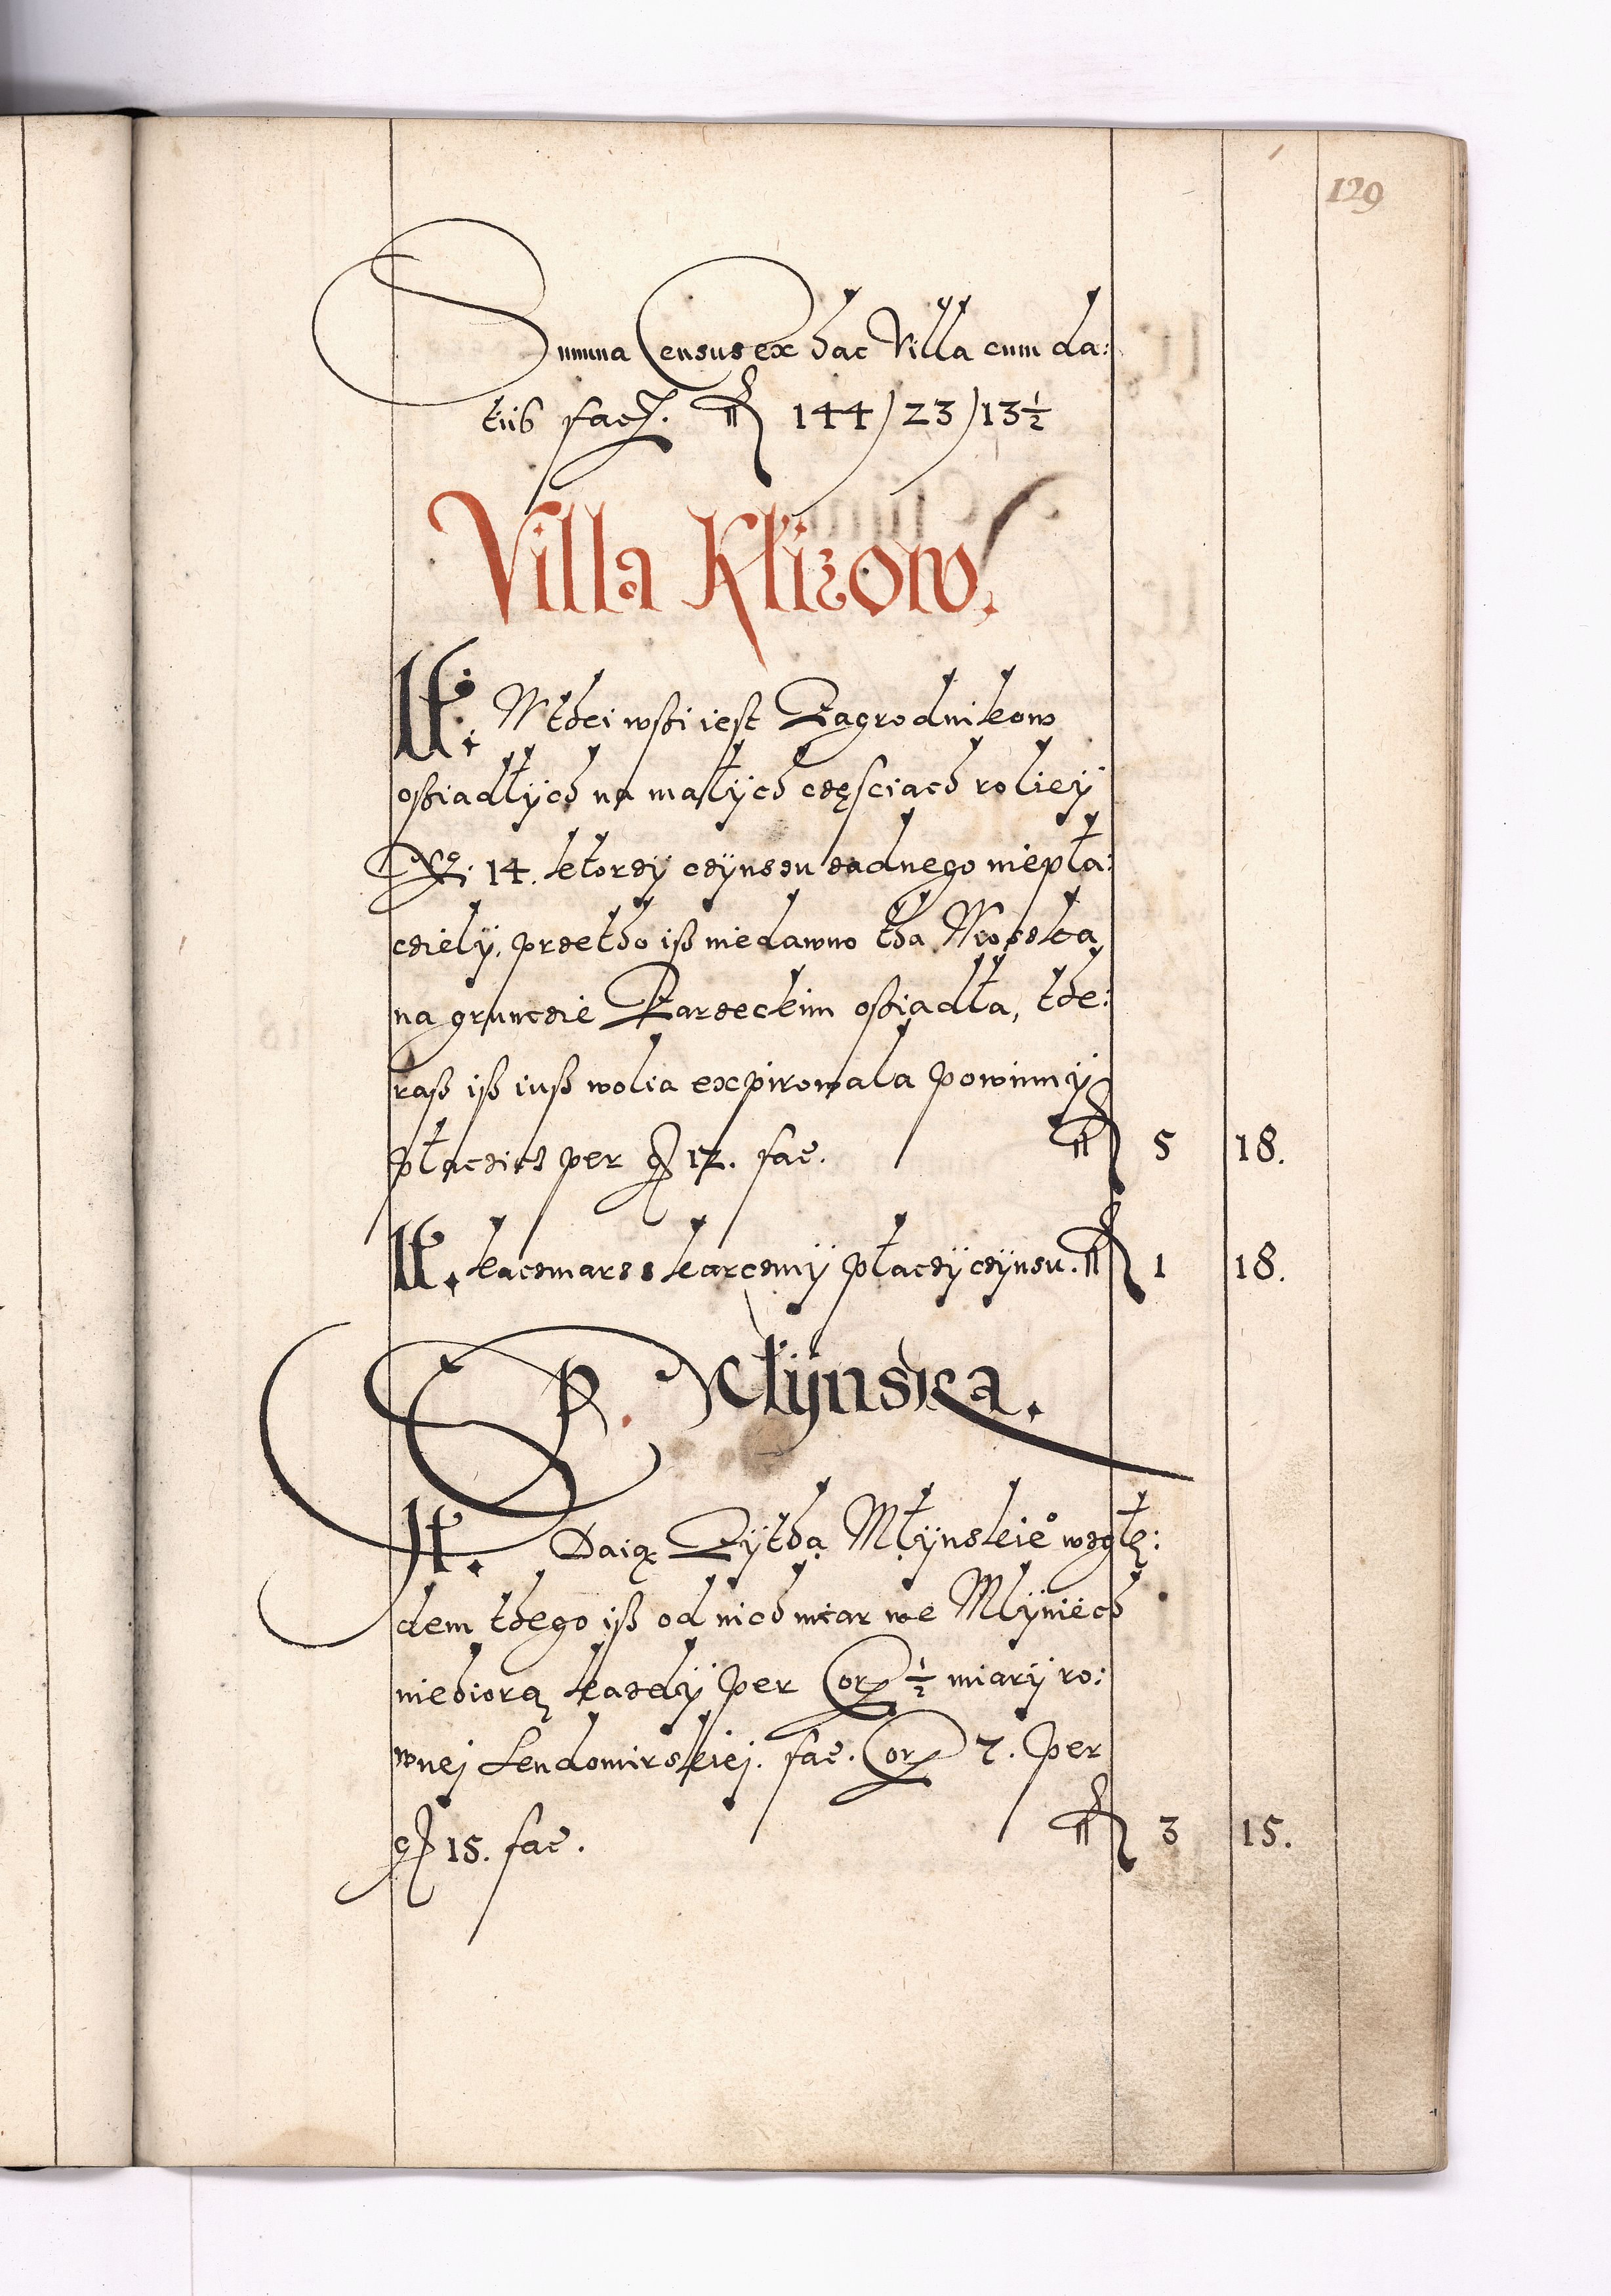 129
Summa Census ex hac Villa cum da:
tiis facz. fl 144/23/13½
Villa Kłizow.
It. W thei wsi iest Zagrodnikow
ossiadłÿch na małÿch częsciach roliеÿ
No. 14. ktorzÿ czÿnszu zadnego niepła:
czielÿ, przetho iß niedawno tha Wioska
na grunczie ossiadła, the:
raß iß iuß wolia expirowala powinnÿ
płaczicz per g 12. fac. fl 5 18.
It. kaczmarz s karczmÿ płaczÿ czÿnsu. fl 1 18.
R. Młÿnska.
It. Daią Zÿtha Młÿnskieo wzglę:
dem thego iß od nich miar we Mlÿniech
niebiorą kazdÿ per Cor ½ miarÿ ro:
wnej Sendomirskiej. fac. Cor 7. per
g 15. fac. fl 3 15.